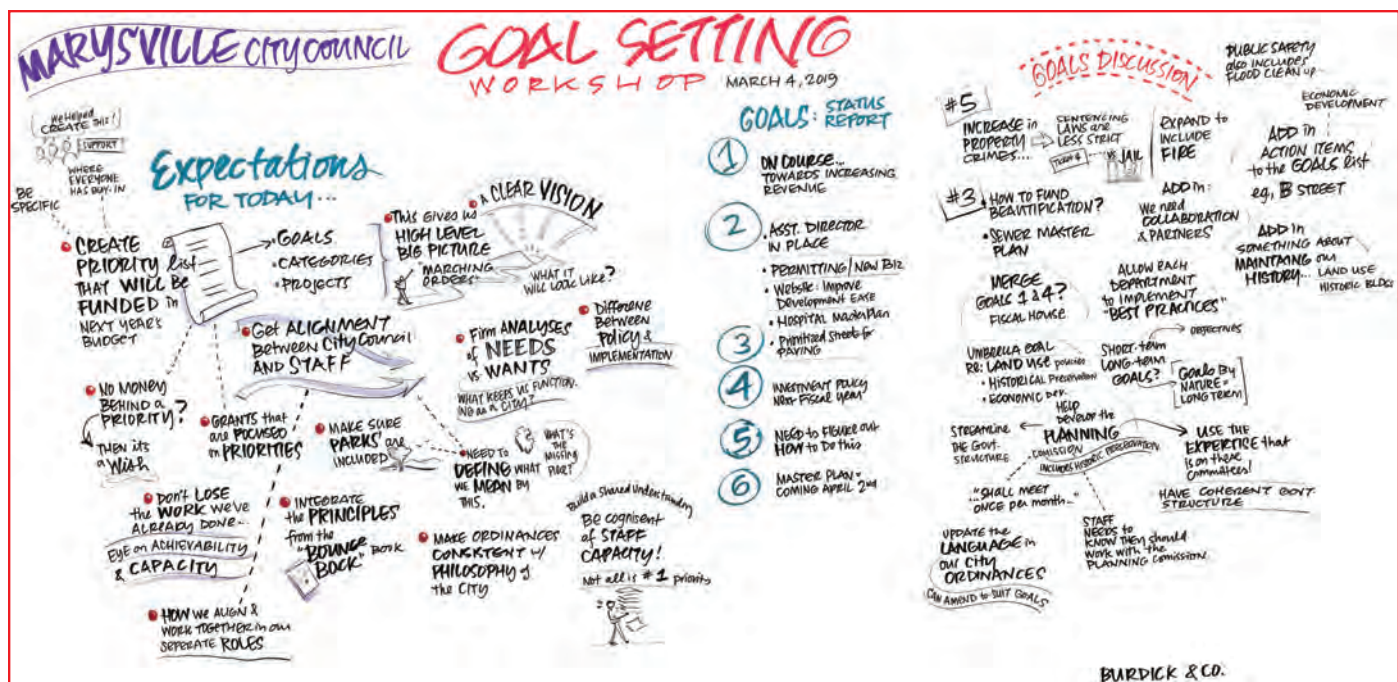 MARYSVILLE CITY COUNCIL
GOAL SETTING
WORKSHOP
MARCH 4, 2019
We Helped
CREATE THIS!
SUPPORT
WHERE
EVERYONE
HAS BUY-IN
BE
SPECIFIC
Expectations
FOR TODAY...
CREATE
PRIORITY list
THAT WILL BE
FUNDED in
NEXT YEAR'S
BUDGET
• GOALS
• CATEGORIES
• PROJECTS
This Gives us
HIGH LEVEL
BIG PICTURE
"MARCHING
ORDERS"
A CLEAR VISION
WHAT IT
WILL LOOK LIKE?
Get ALIGNMENT
Between City Council
AND STAFF
Firm ANALYSES
of NEEDS
vs. WANTS
WHAT KEEPS US FUNCTION-
ING as a CITY?
Difference
Between
Policy &
IMPLEMENTATION
NO MONEY
BEHIND a
PRIORITY?
THEN it's
a Wish
GRANTS that
are FOCUSED
on PRIORITIES
MAKE SURE
PARKS are
INCLUDED
NEED TO
DEFINE WHAT
WE MEAN BY
THIS.
WHAT'S
THE
MISSING
PART?
DON'T LOSE
the WORK WE'VE
ALREADY DONE...
EYE on ACHIEVABILITY
& CAPACITY
INTEGRATE
the PRINCIPLES
from the
"BOUNCE
BACK" BOOK
MAKE ORDINANCES
CONSISTENT w/
PHILOSOPHY of
the CITY
Build a Shared Understanding
Be cognisent
of STAFF
CAPACITY!
Not all is #1 priority
HOW WE ALIGN &
WORK TOGETHER in our
SEPERATE ROLES
GOALS: STATUS
REPORT
1
ON COURSE...
TOWARDS INCREASING
REVENUE
2
• ASST. DIRECTOR
IN PLACE
• PERMITTING/NEW BIZ
• Website: Improve
Development Ease
• Hospital Master Plan
3
• Prioritized Streets for
PAVING
4
INVESTMENT POLICY
Next Fiscal Year
5
NEED to FIGURE OUT
HOW to Do this
6
MASTER PLAN -
COMING APRIL 2nd
GOALS DISCUSSION
PUBLIC SAFETY
also INCLUDES
FLOOD CLEAN UP
#5
INCREASE in
PROPERTY
CRIMES...
SENTENCING
LAWS are
LESS STRICT
vs JAIL
EXPAND to
INCLUDE
FIRE
ECONOMIC
DEVELOPMENT
ADD in
ACTION ITEMS
to the GOALS list
eg, B STREET
#3
HOW TO FUND
BEAUTIFICATION?
• SEWER MASTER
PLAN
ADD in:
We need
COLLABORATION
& PARTNERS
ADD in
SOMETHING ABOUT
MAINTAING our
HISTORY... LAND USE
HISTORIC BLDGS
MERGE
GOALS 1 & 4?
FISCAL HOUSE
ALLOW EACH
DEPARTMENT
to IMPLEMENT
"BEST PRACTICES"
UMBRELLA GOAL
RE: LAND USE policies
• HISTORICAL Preservation
• ECONOMIC DEV.
SHORT-term
LONG-term
GOALS?
OBJECTIVES
GOALS BY
NATURE =
LONG TERM
STREAMLINE
THE Govt.
STRUCTURE
HELP
DEVELOP the
PLANNING
COMISSION
INCLUDES HISTORIC PRESERVATION
USE THE
EXPERTICE that
is on these
committees!
HAVE COHERENT GOVT.
STRUCTURE
..."SHALL MEET
ONCE per month..."
UPDATE the
LANGUAGE in
our CITY
ORDINANCES
CAN AMEND to SUIT GOALS
STAFF
NEEDS to
KNOW THEY SHOULD
WORK WITH the
PLANNING COMISSION.
BURDICK & CO.